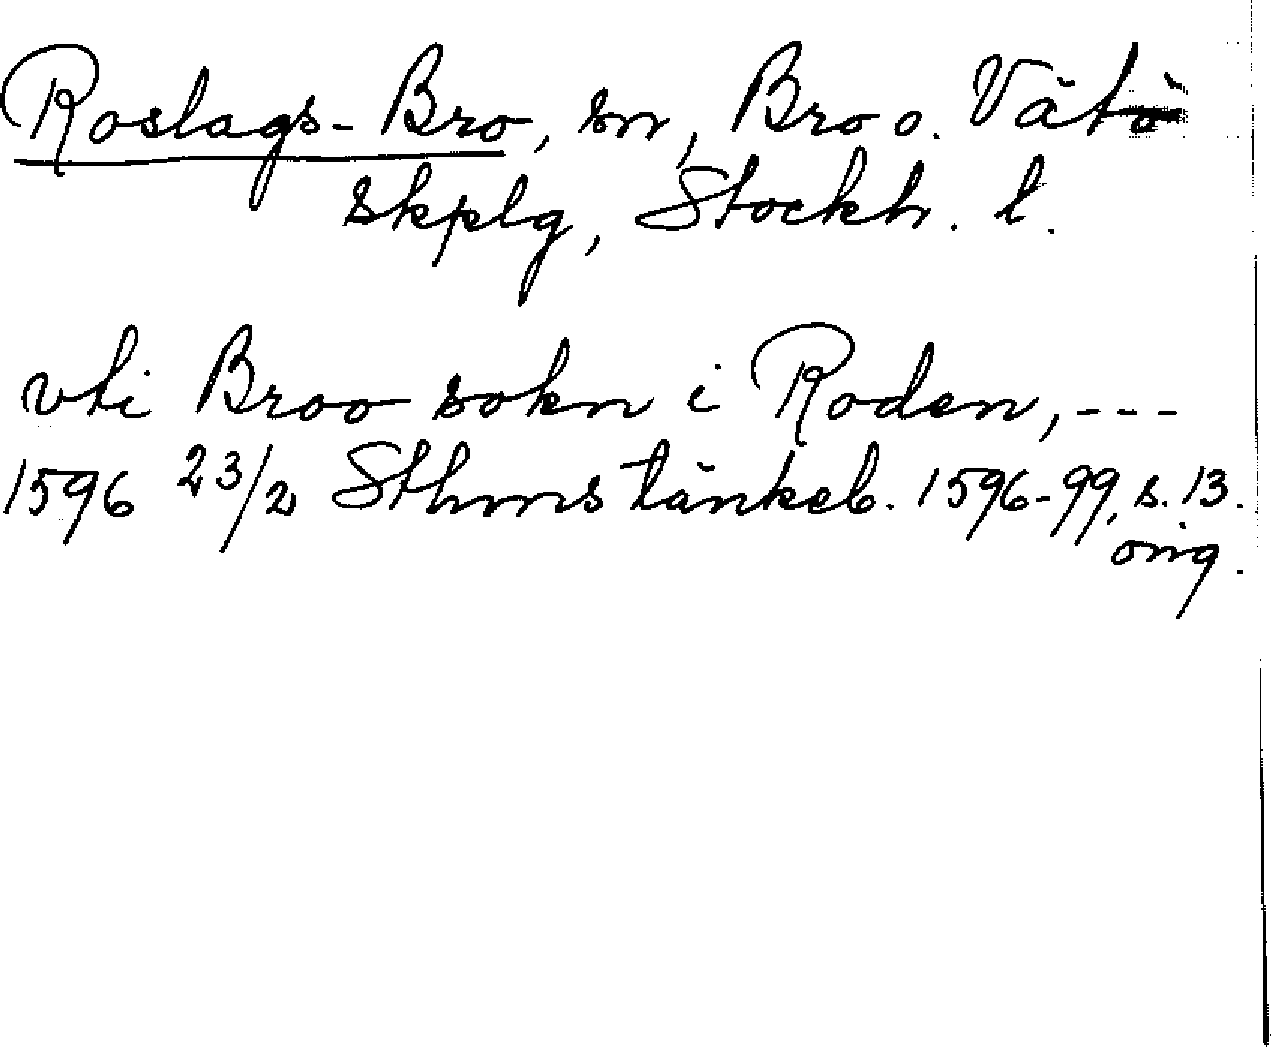 Roslags-Bro, sn, Bro o. Vätö
skplg, Stockh. l.
vti Broo sokn i Roden, ---
1596 23/2 Sthms tänkeb. 1596-99, s. 13.
orig.